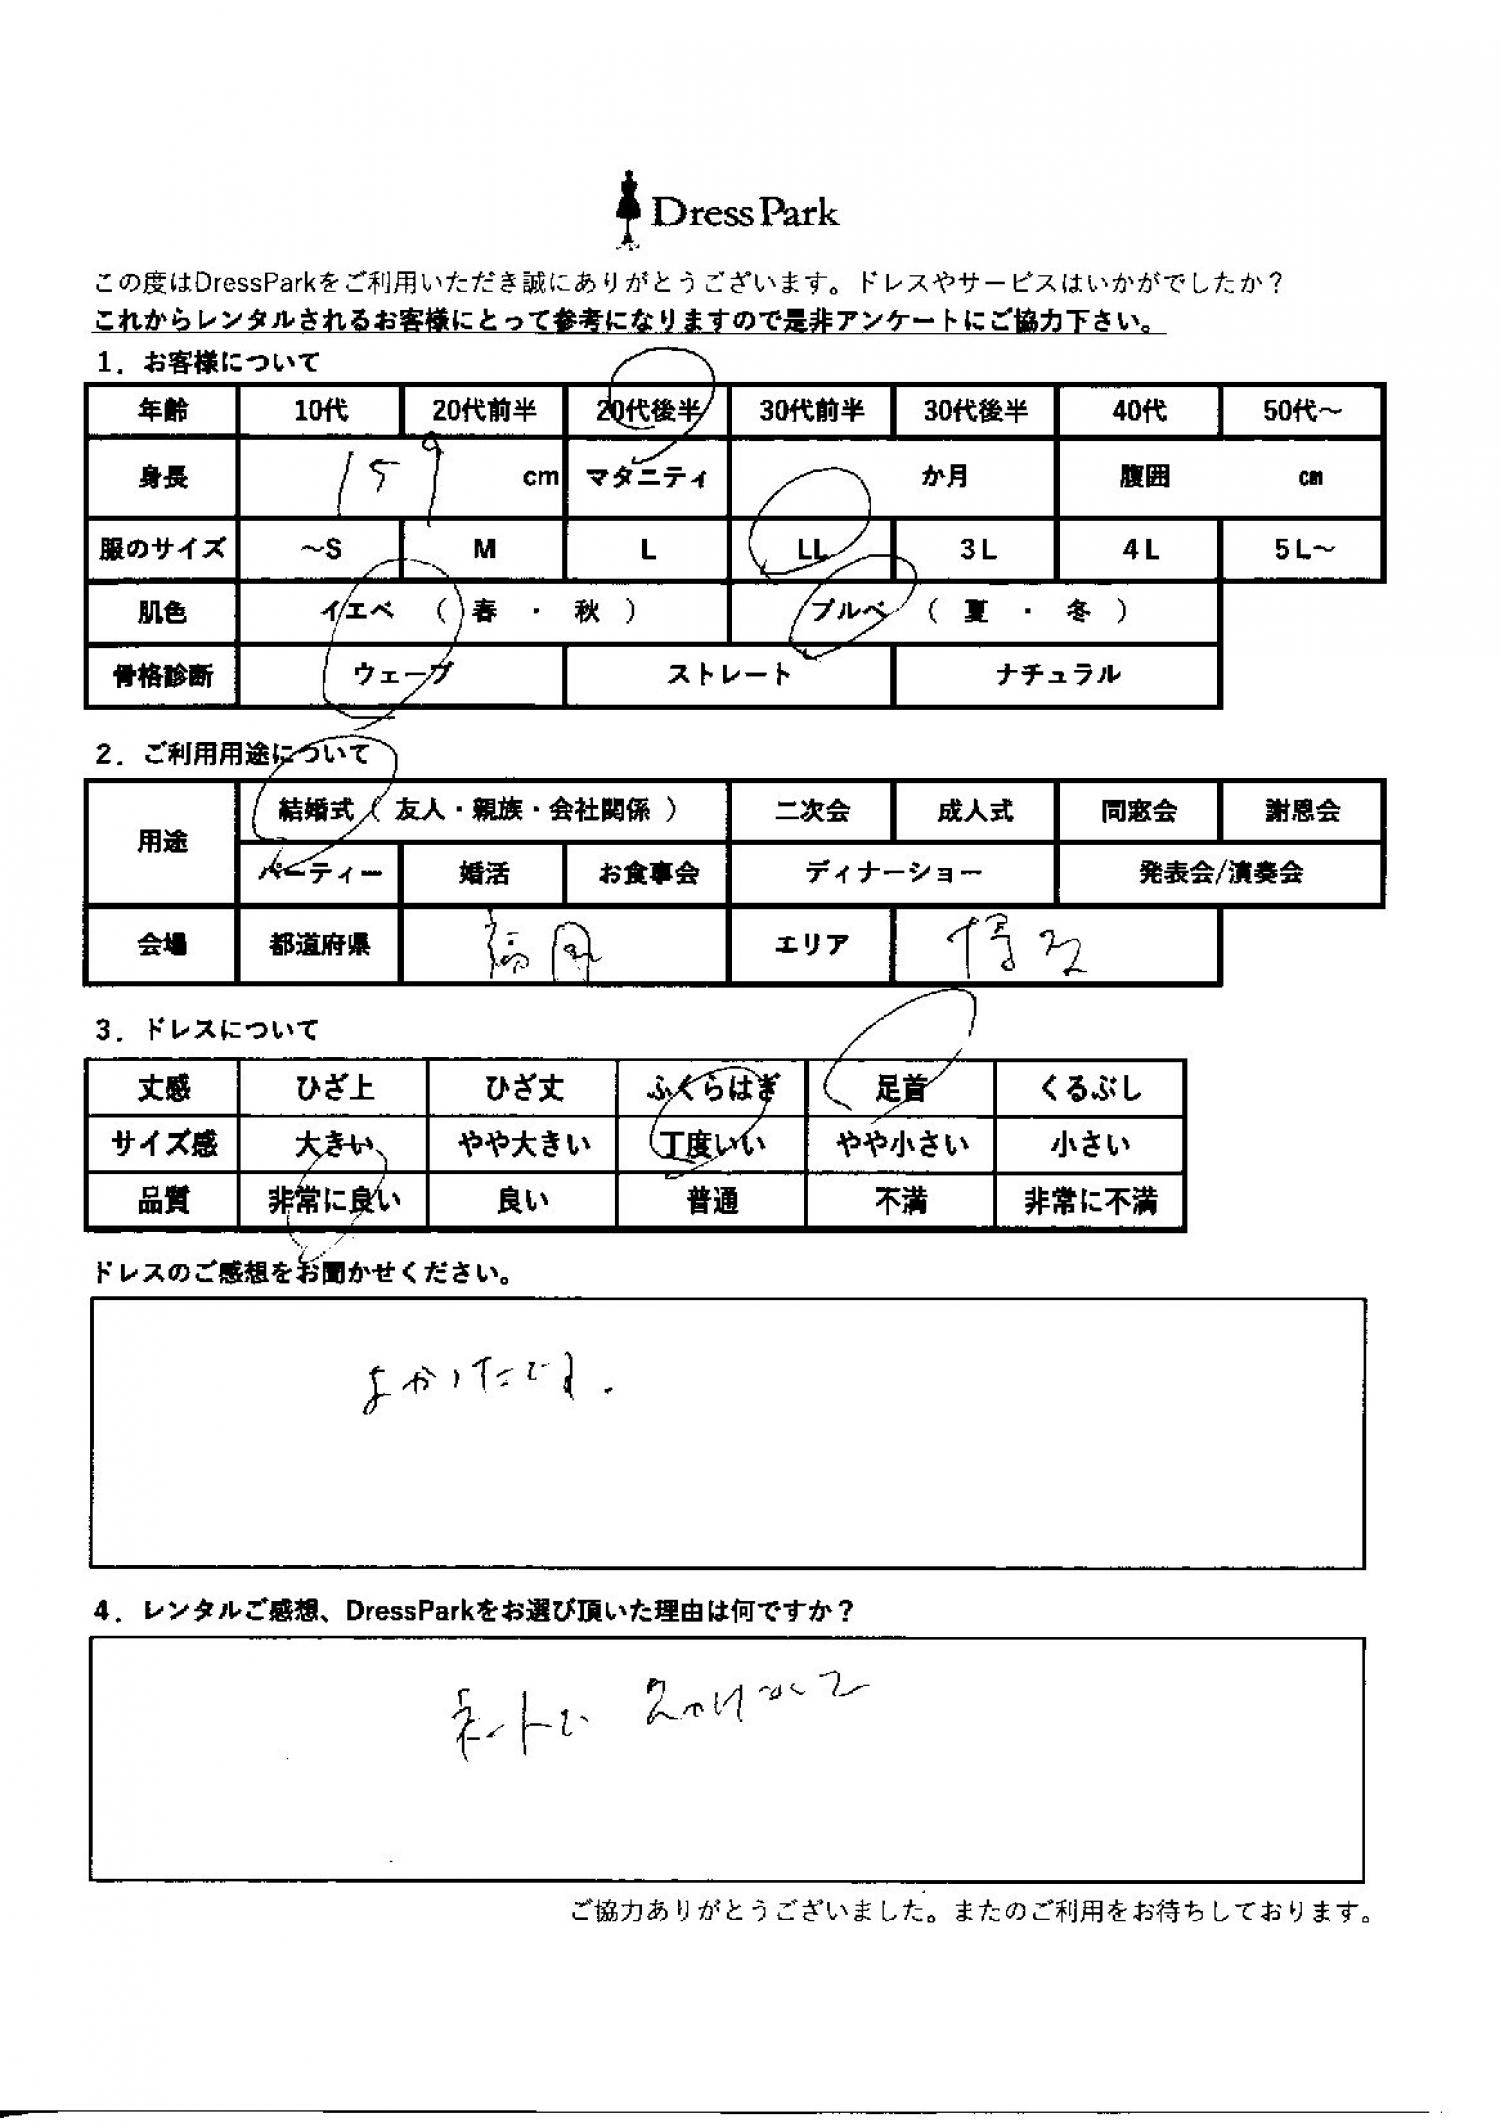 DressPark
この度はDressParkをご利用いただき誠にありがとうございます。ドレスやサービスはいかがでしたか？
これからレンタルされるお客様にとって参考になりますので是非アンケートにご協力下さい。
1．お客様について
年齢 10代 20代前半 20代後半 30代前半 30代後半 40代 50代～
身長 159 cm マタニティ か月 腹囲 cm
服のサイズ ～S M L LL 3L 4L 5L～
肌色 イエベ （ 春 ・ 秋 ） ブルベ （ 夏 ・ 冬 ）
骨格診断 ウェーブ ストレート ナチュラル
2．ご利用用途について
用途 結婚式（ 友人・親族・会社関係 ） 二次会 成人式 同窓会 謝恩会
パーティー 婚活 お食事会 ディナーショー 発表会/演奏会
会場 都道府県 福岡 エリア 博多
3．ドレスについて
丈感 ひざ上 ひざ丈 ふくらはぎ 足首 くるぶし
サイズ感 大きい やや大きい 丁度いい やや小さい 小さい
品質 非常に良い 良い 普通 不満 非常に不満
ドレスのご感想をお聞かせください。
よかったです.
4．レンタルご感想、DressParkをお選び頂いた理由は何ですか？
ネットで
ご協力ありがとうございました。またのご利用をお待ちしております。